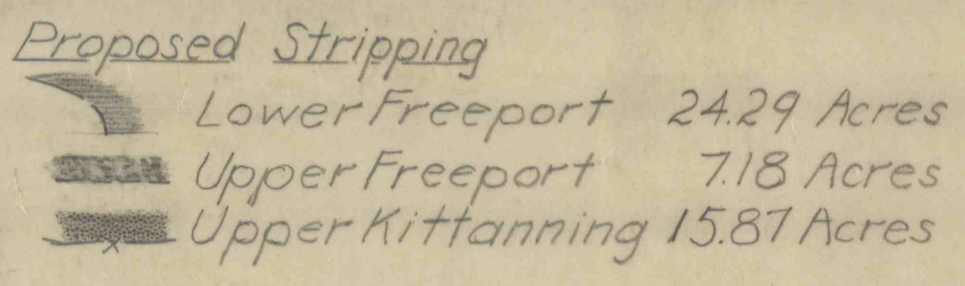 Proposed Stripping
Lower Freeport 24.29 Acres
Upper Freeport 7.18 Acres
Upper Kittanning 15.87 Acres